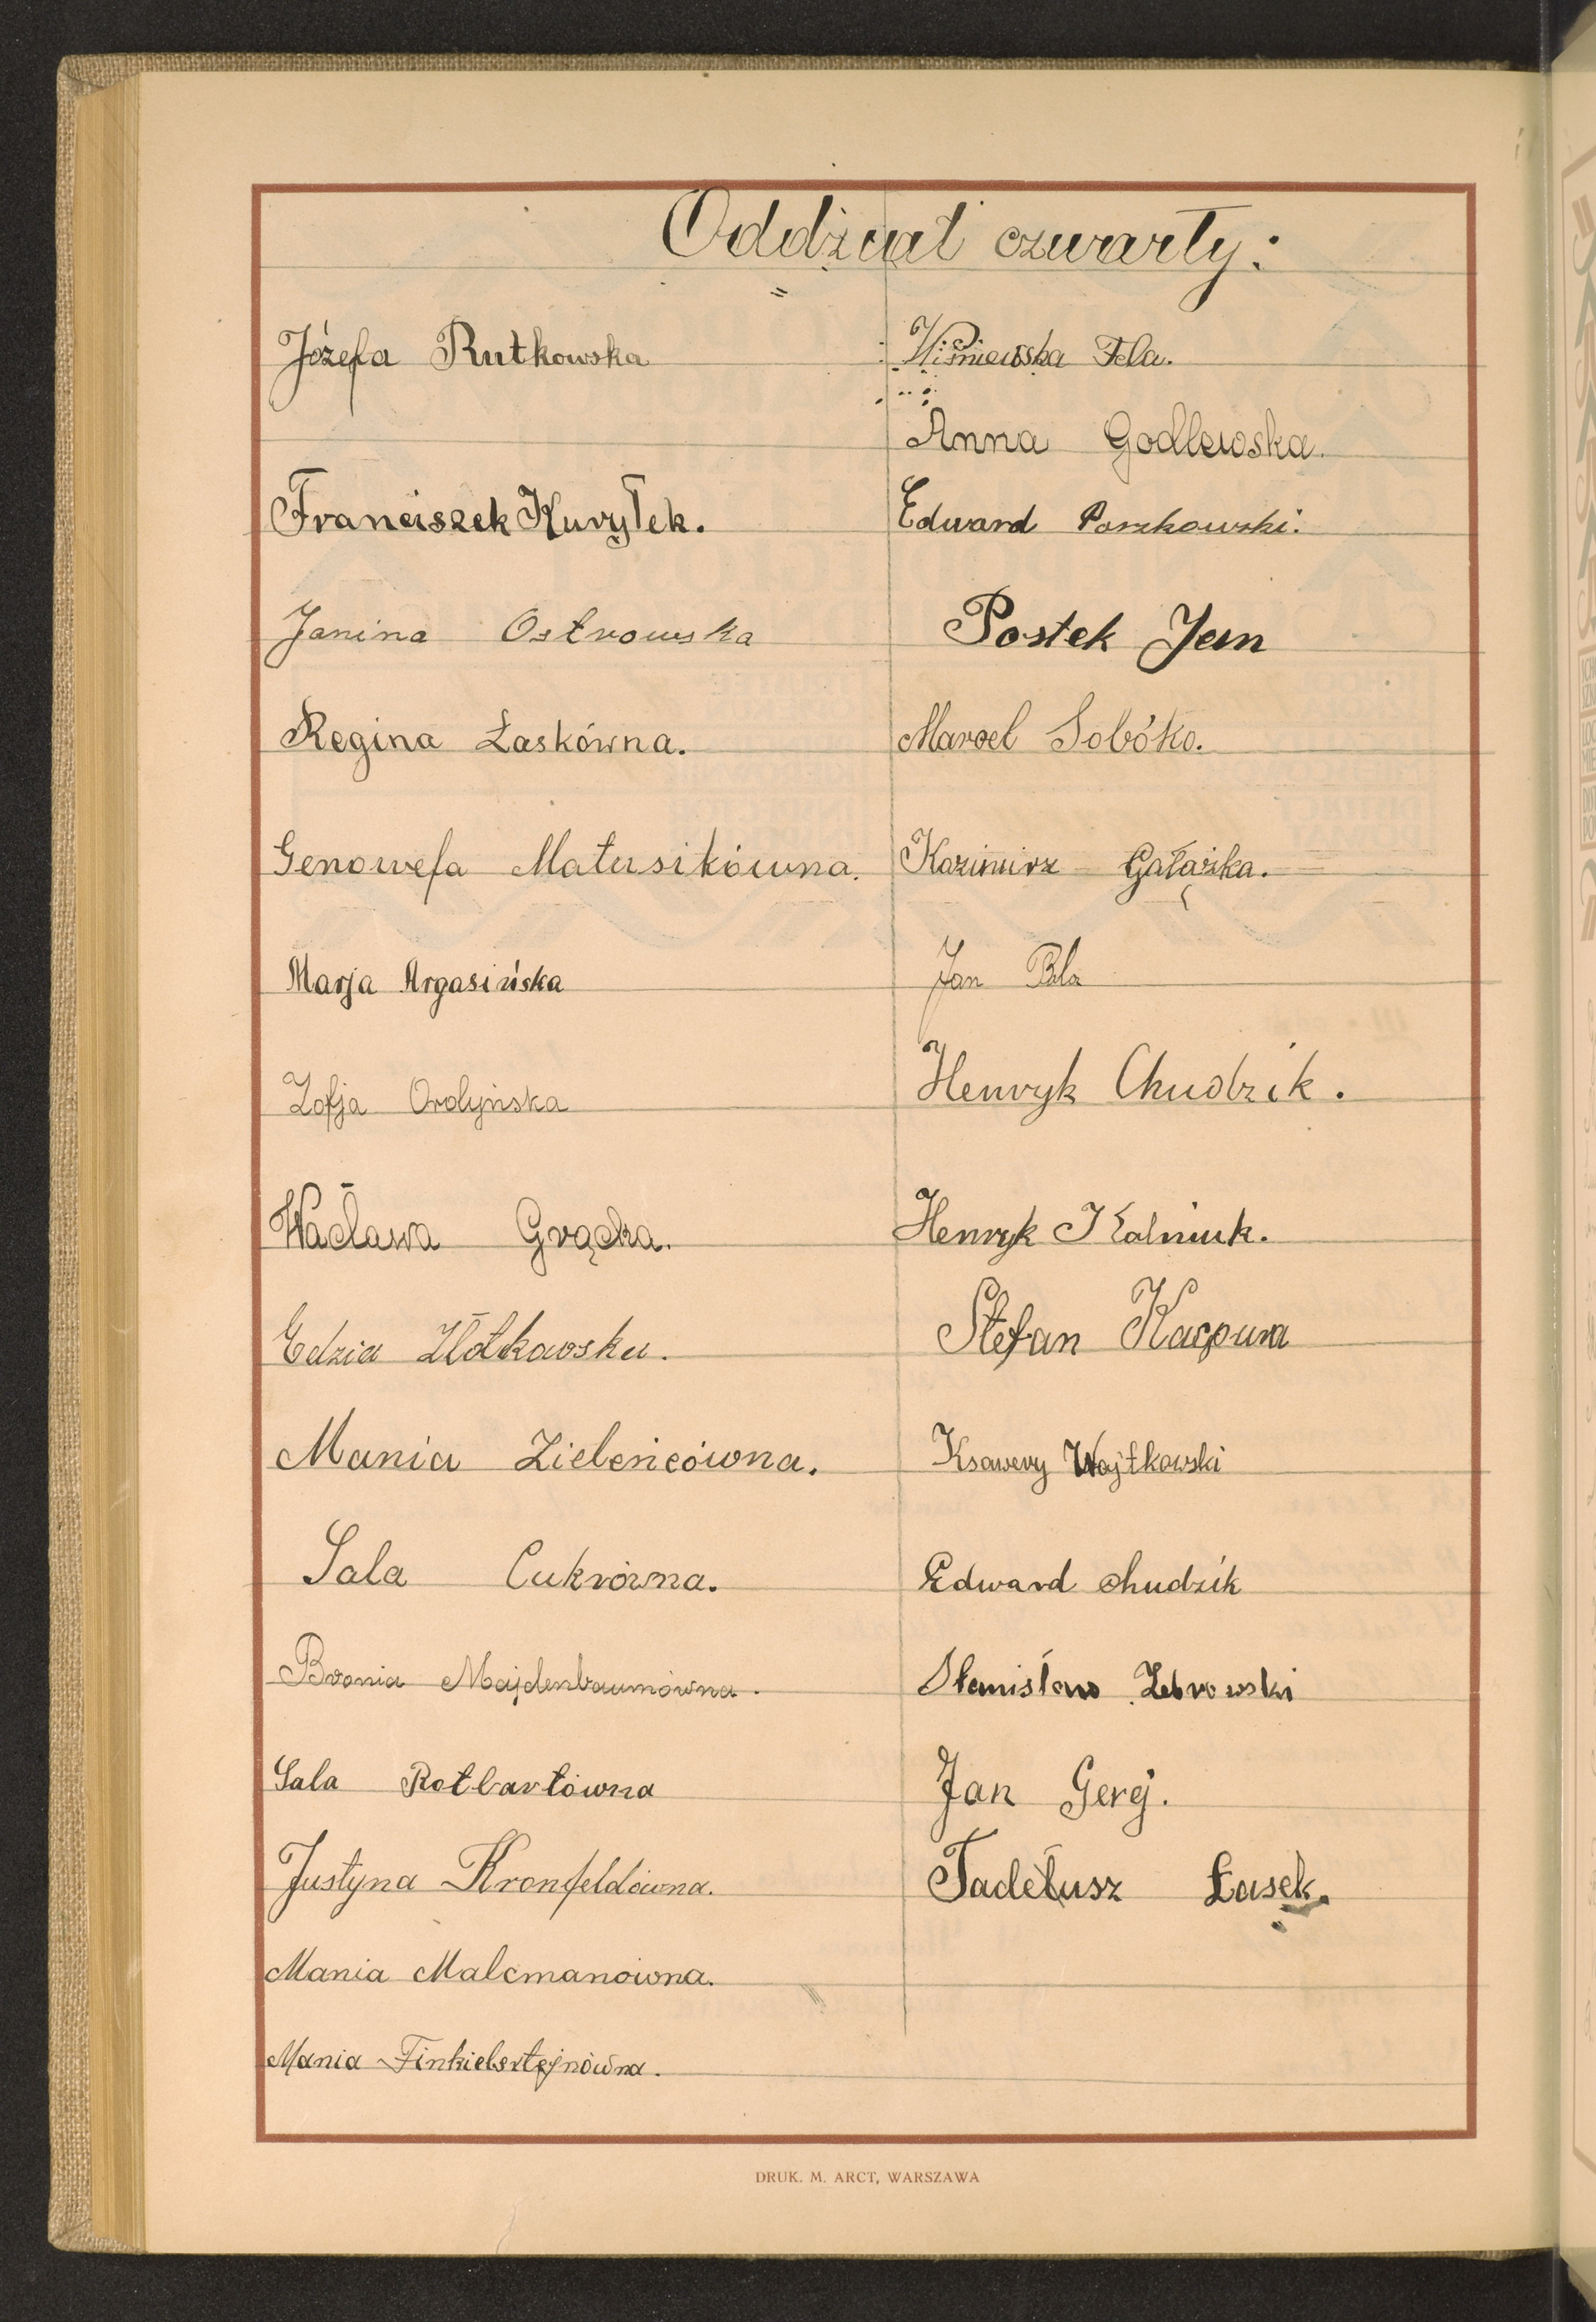 Oddział czwarty:
Józefa Rutkowska
Franciszek Kuryłek.
Janina Ostrowska
Regina Łaskówna.
Genowefa Matusikówna.
Marja Argasińska
Zofja Orolyńska
Wacława Grącka.
Edzia Złotkowska.
Mania Zieleńcówna.
Sala Cukrówna.
Bronia Majdenbaumówna.
Sala Rotbartówna
Justyna Kronfeldówna.
Mania Malcmanówna.
Mania Finkielsztejnówna.
Wiśniewska Fela.
Anna Godlewska.
Edward Poszkowski.
Postek Jan
Marcel Sobótko.
Kazimirz Gałązka.
Jan
Henryk Chudzik.
Henryk Kalniuk.
Stefan Kacpura
Ksawery Wojtkowski
Edward Chudzik
Stanisław Zebrowski
Jan Gerej.
Tadeusz Łasek.
DRUK. M. ARCT, WARSZAWA